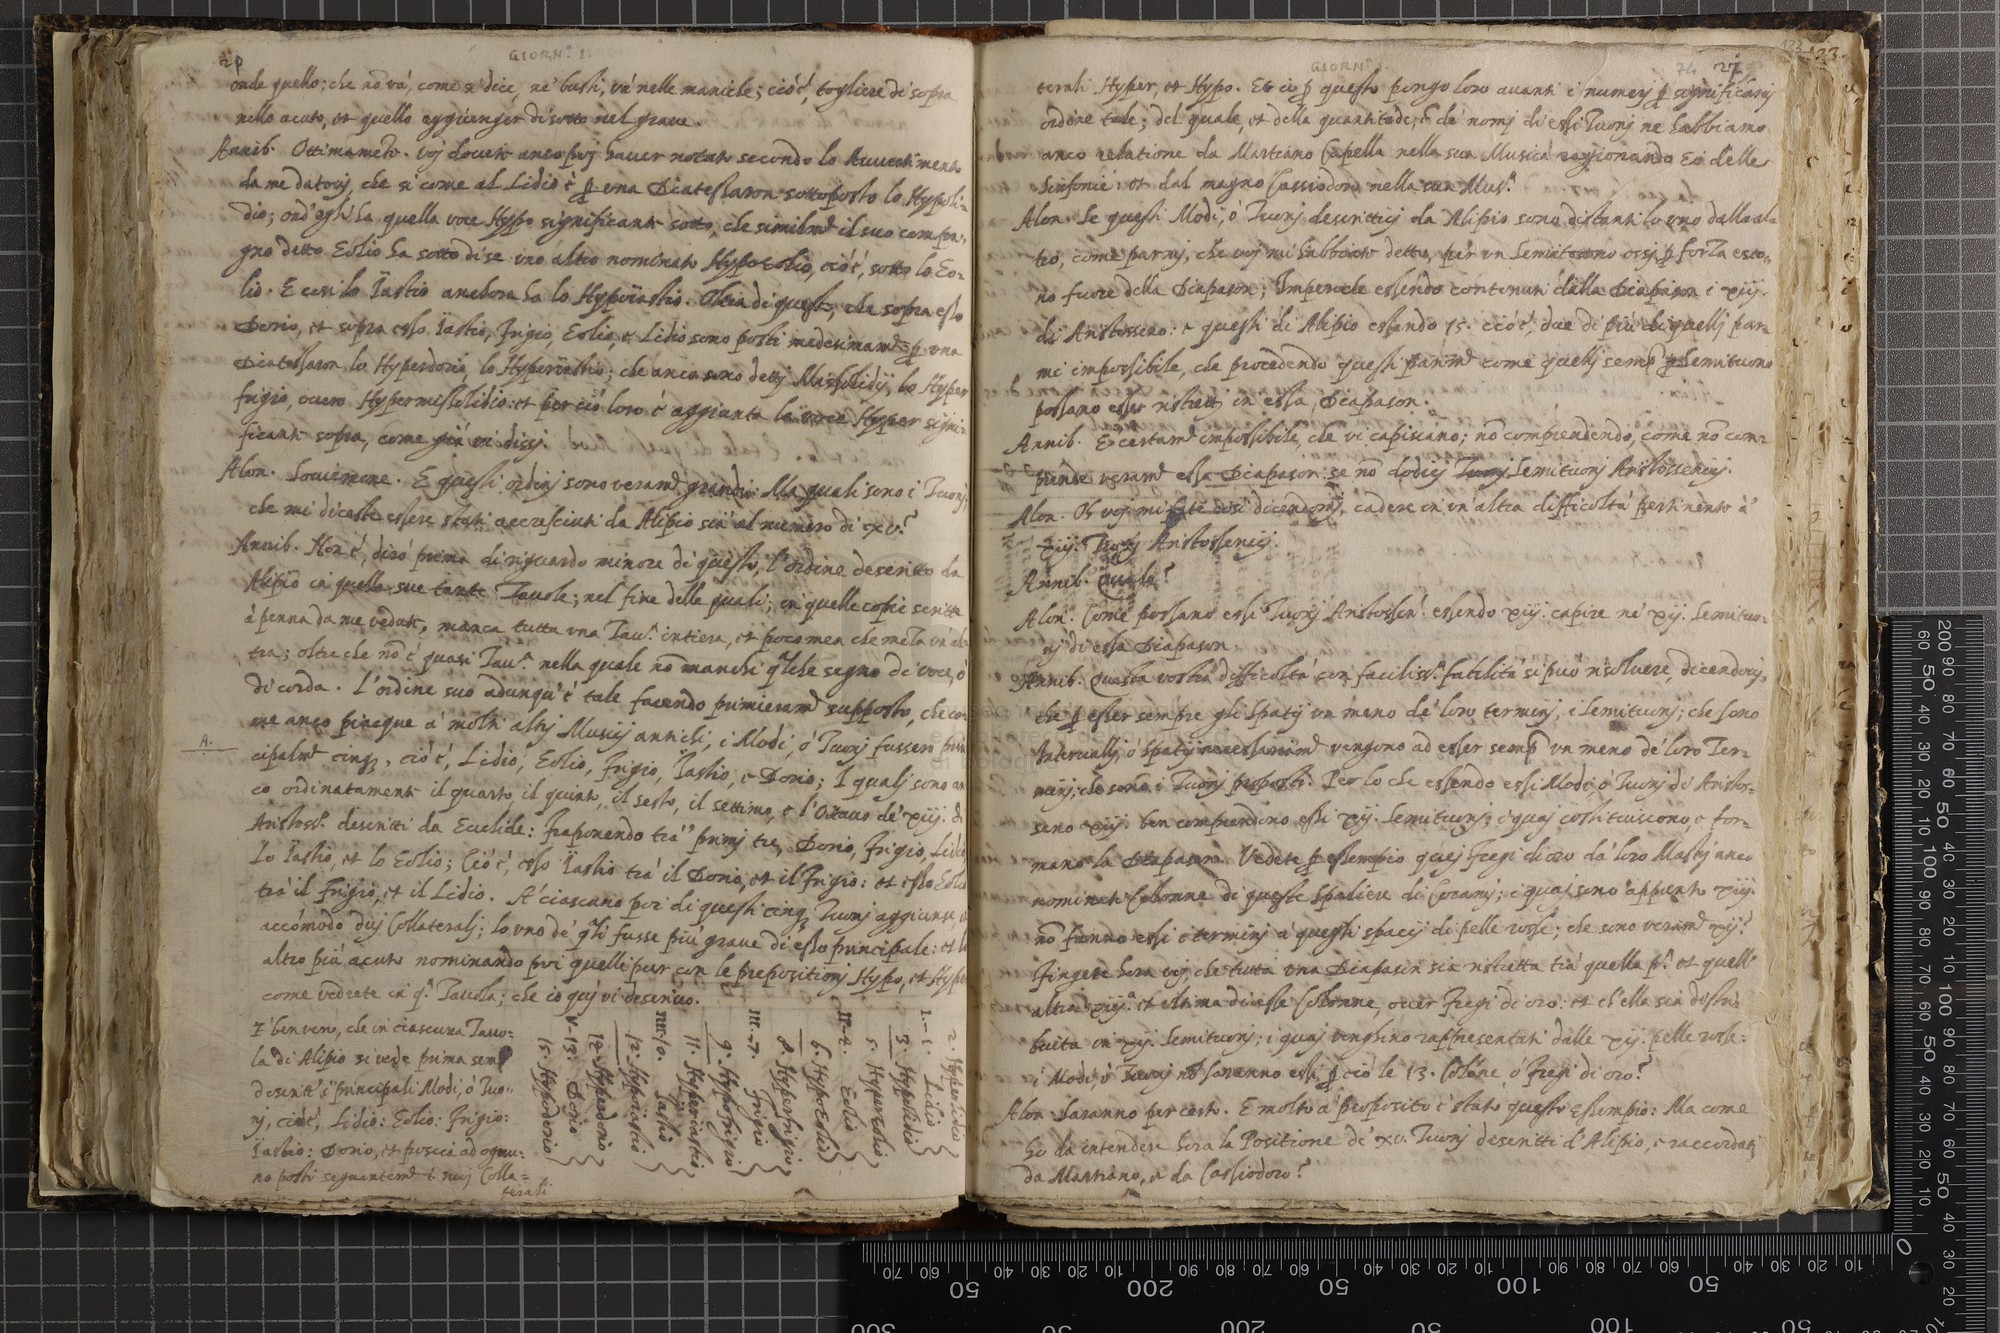 GIORN.ª I.
onde quello; che nõ và, come si dice, ne' busti, và nelle maniche; cioè, togliere di sopra
nello acuto, et quello aggiunger di sotto nel graue.
Annib. Ottimamẽte. Voj douete anco poj hauer notato secondo lo Auuertimento
da me datovj, che sì come al Lidio è ꝑ una Diatessaron sottoposto lo Hypoli-
dio; ond'egli ha quella voce Hypo significante sotto, che similmẽ il suo compa-
gno detto Eolio ha sotto di se uno altro nominato HypoEolio, cioè, sotto lo Eo-
lio. E così lo Iastio anchora ha lo Hypoiastio. Oltra di questo, che sopra esso
Dorio, et sopra esso Iastio, Frigio, Eolio, e Lidio sono posti medesimamẽ ꝑ una
Diatessaron lo Hyperdorio, lo Hyperiastio; che anco sono dettj Missolidij, lo Hyper
frigio, ouero Hypermissolidio: et perciò loro è aggiunta la voce Hyper signi-
ficante sopra, come già vi dissj.
Alon. Souiemene. E questi ordinj sono veramẽ grandi. Ma quali sono i Tuonj,
che mi diceste essere stati accresciuti da Alipio sin' al numero di xv.?
Annib. Non è, dirò prima di riguardo minore di questo, l'ordine descritto da
Alipio in quelle sue tante Tauole; nel fine delle quali, in quelle copie scritte
à penna da me vedute, manca tutta una Tau.ª intiera, et poco men che meza un'al-
tra; oltre che nõ è quasi Tau.ª nella quale nõ manchi qlche segno di voce, ò
di corda. L'ordine suo adunqu' è tale facendo primieramẽ supposto, che co-
me anco piacque à molti altrj Musicj antichi, i Modi, ò Tuonj fussero prin
A. cipalmẽ cinqꝫ, cioè, Lidio, Eolio, Frigio, Iastio, e Dorio; I qualj sono an
co ordinatamente il quarto, il quinto, il sesto, il settimo, e l'Ottauo de' xiij. di
Aristoss.º descritti da Euclide: fraponendo trà i primj tre, Dorio, Frigio, Lidio
lo Iastio, et lo Eolio; Cioè, esso Iastio trà il Dorio, et il Frigio: et esso Eolio
trà il Frigio, et il Lidio. A' ciascuno poi di questi cinqꝫ Tuonj aggiunse,
accómodò duj Collateralj; lo uno de' qli fusse più graue di esso principale: et lo
altro più acuto nominando poi quelli pur con le prepositionj Hypo, et Hyper
come vedrete in q.ª Tauola; che io quj vi descriuo.
E' ben vero, che in ciascuna Tauo-
la di Alipio si vede prima semp
descritti i principali Modi, ò Tuo-
nj, cioè, Lidio: Eolio: Frigio:
Iastio: Dorio, et poscia ad ognu-
no posti seguentemẽ i suoj Colla-
terali
2. Hyperlidio
I.–1. Lidio
3. Hypolidio
5. Hypereolio
II.–4. Eolio
6. HypoEolio
8. Hyperfrigio
III.–7. Frigio
9. Hypofrigio
11. Hyperiastio
IIII.–10. Iastio
12. Hypoiastio
14. Hyperdorio
V.–13. Dorio
15. Hypodorio
GIORN.ª I.
74 27
123
terali Hyper, et Hypo. Et io ꝑ questo pongo loro auanti i numerj ꝑ significarvj
ordine tale; del quale, et della quantità, e de' nomj di essi Tuonj ne habbiamo
anco relatione da Martiano Capella nella sua Musica ragionando Ei delle
Sinfonie: et dal magno Cassiodoro nella sua Mus.ª
Alon. Se questi Modi, ò Tuonj descrittij da Alipio sono distanti lo uno dallo al-
tro, come parmj, che voj mi habbiate detto, per un Semituono essi ꝑ forza esco-
no fuore della Diapason; Imperoche essendo contenuti dalla Diapason i xiij.
di Aristosseno: e questi di Alipio essendo 15. cioè, due di più di quellj par-
mi impossibile, che procedendo questi parimẽ come quellj semp ꝑ Semituono
possano esser ristretti in essa Diapason.
Annib. E' certamẽ impossibile, che vi capiscano; nõ comprendendo, come nõ com-
prende veramẽ essa Diapason se nõ dodicj Semituonj Aristossenicj.
Alon. Oh voj mi fate così dicendomj, cadere in un' altra difficoltà pertinente à
xiij. Tuonj Aristossenicj.
Annib. Quale?
Alon. Come possano essi Tuonj Aristossen.ⁱ essendo xiij. capire ne' xij. Semituo-
nj di essa Diapason.
Annib. Questa vostra difficoltà con faciliss.ª facilità si può risoluere, dicendovj,
che ꝑ esser sempre gli Spatij un meno de' loro terminj, i Semituonj; che sono
Interuallj, ò spatij necessariamẽ vengono ad esser semp un meno de' loro Ter-
minj; che sono i Tuonj proposti. Per lo che essendo essi Modi, ò Tuonj di Aristos-
seno xiij. ben comprendono essi xij. Semituonj; i quaj costituiscono, e for-
mano la Diapason. Vedete ꝑ essempio quej Fregi di oro da loro Mastrj anco
nominati Colonne di queste Spaliere di Coramj; i quaj sono appunto xiij.
nõ fanno essi i terminj a quegli spacij di pelle rosse; che sono veramẽ xij?
Fingete hora voj, che tutta una Diapason sia ristretta tra' quella p.ª et quell'
altra xiij.ª et ultima di esse Colonne, ouer Fregi di oro: et ch'ella sia distri-
buita in xij. Semituonj; i quaj venghino rappresentati dalle xij. pelle rosse:
i Modi, ò Tuonj nõ saranno essi ꝑ ciò le 13. Colõne, ò Fregi di oro?
Alon. Saranno per certo. E molto a' proposito è stato questo essempio: Ma come
ho da intendere hora la Positione de' xv. Tuonj descritti d'Alipio, e raccordati
da Martiano, e da Cassiodoro?